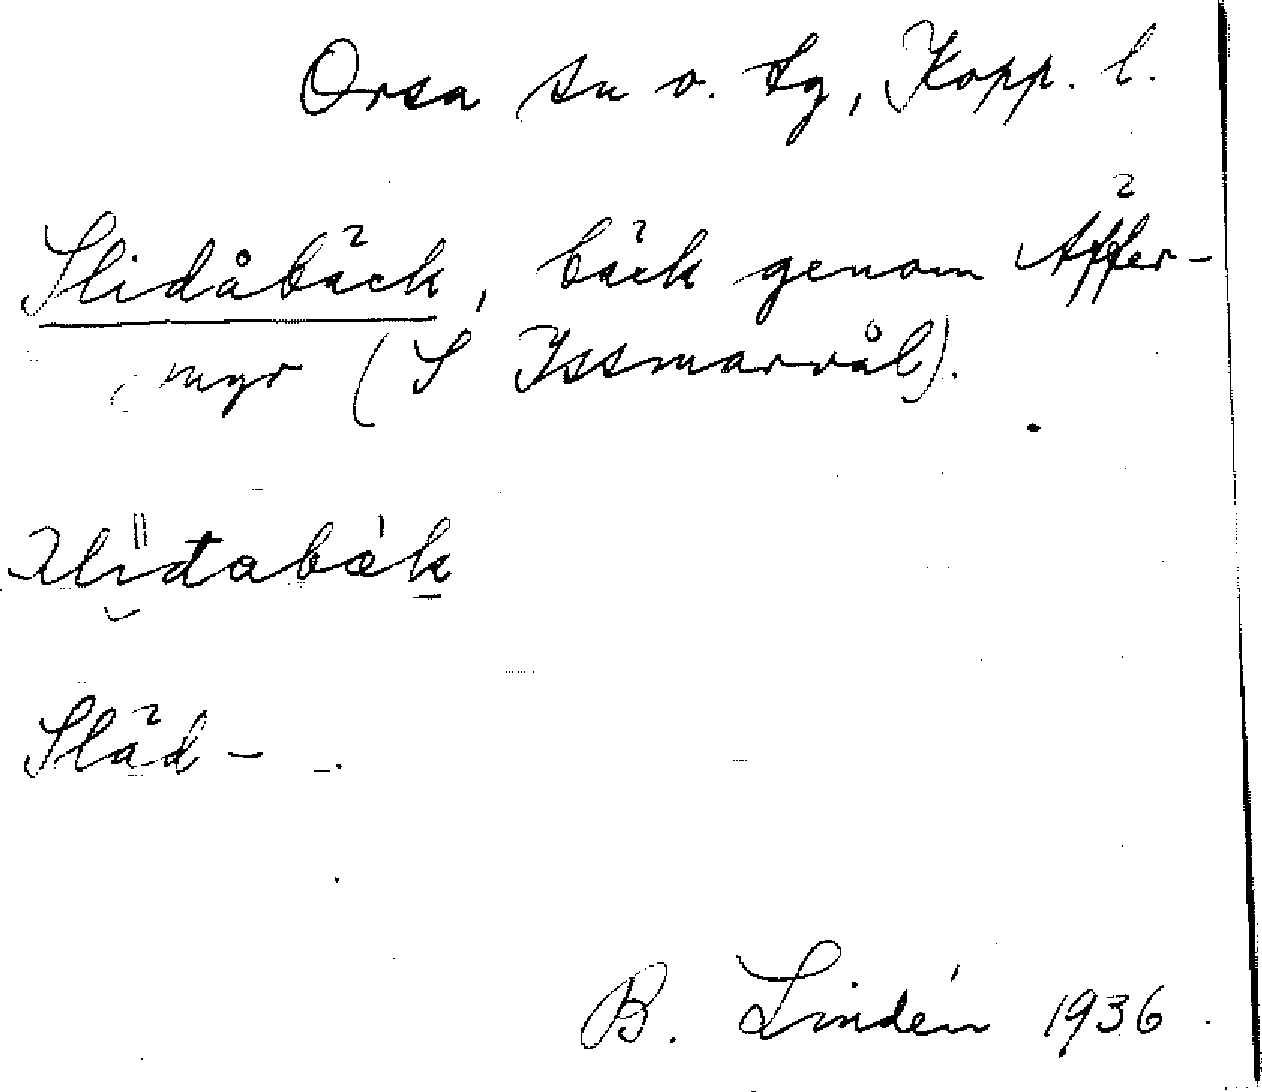 Orsa sn o. tg, Kopp. l.
Slidåbäck, bäck genom Äffer-
myr (S Issmarvål).
slidabäk
Släd-
B. Lindén 1936